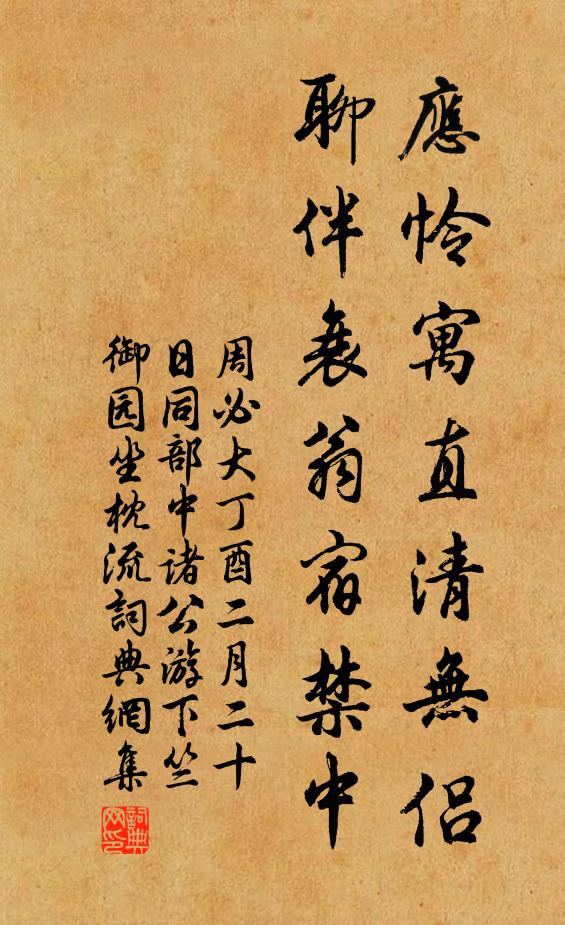 應怜寓直清無侶
聊伴衰翁宿禁中
周必大丁酉二月二十
日同部中诸公游下竺
御园坐枕流詞典網集
詞典
网印